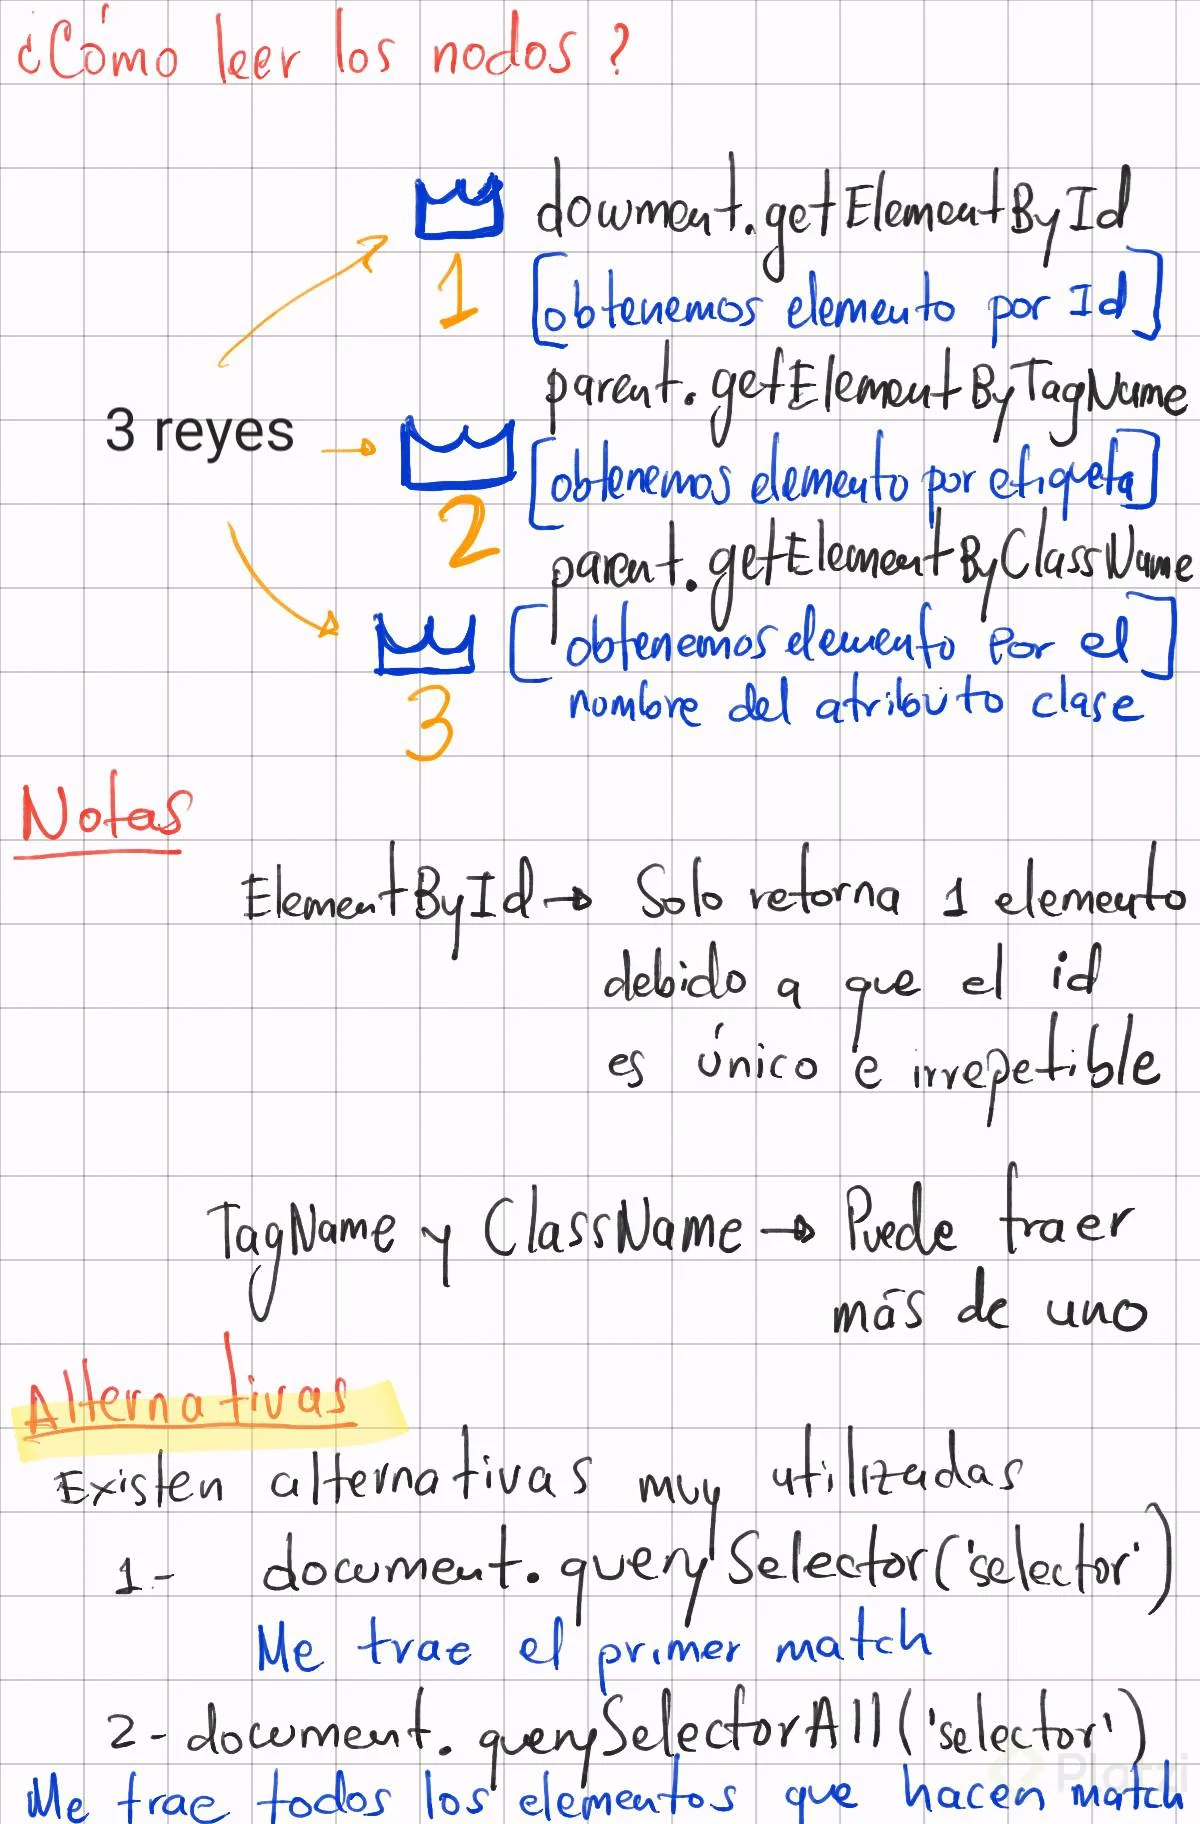 ¿Cómo leer los nodos?
document.getElementById
1 [obtenemos elemento por Id]
parent.getElementByTagName
3 reyes
2 [obtenemos elemento por etiqueta]
parent.getElementByClassName
[obtenemos elemento por el]
3 nombre del atributo clase
Notas
ElementById → Solo retorna 1 elemento
debido a que el id
es único e irrepetible
TagName y ClassName → Puede traer
más de uno
Alternativas
Existen alternativas muy utilizadas
1- document.querySelector('selector')
Me trae el primer match
2- document.querySelectorAll('selector')
Platzi
Me trae todos los elementos que hacen match